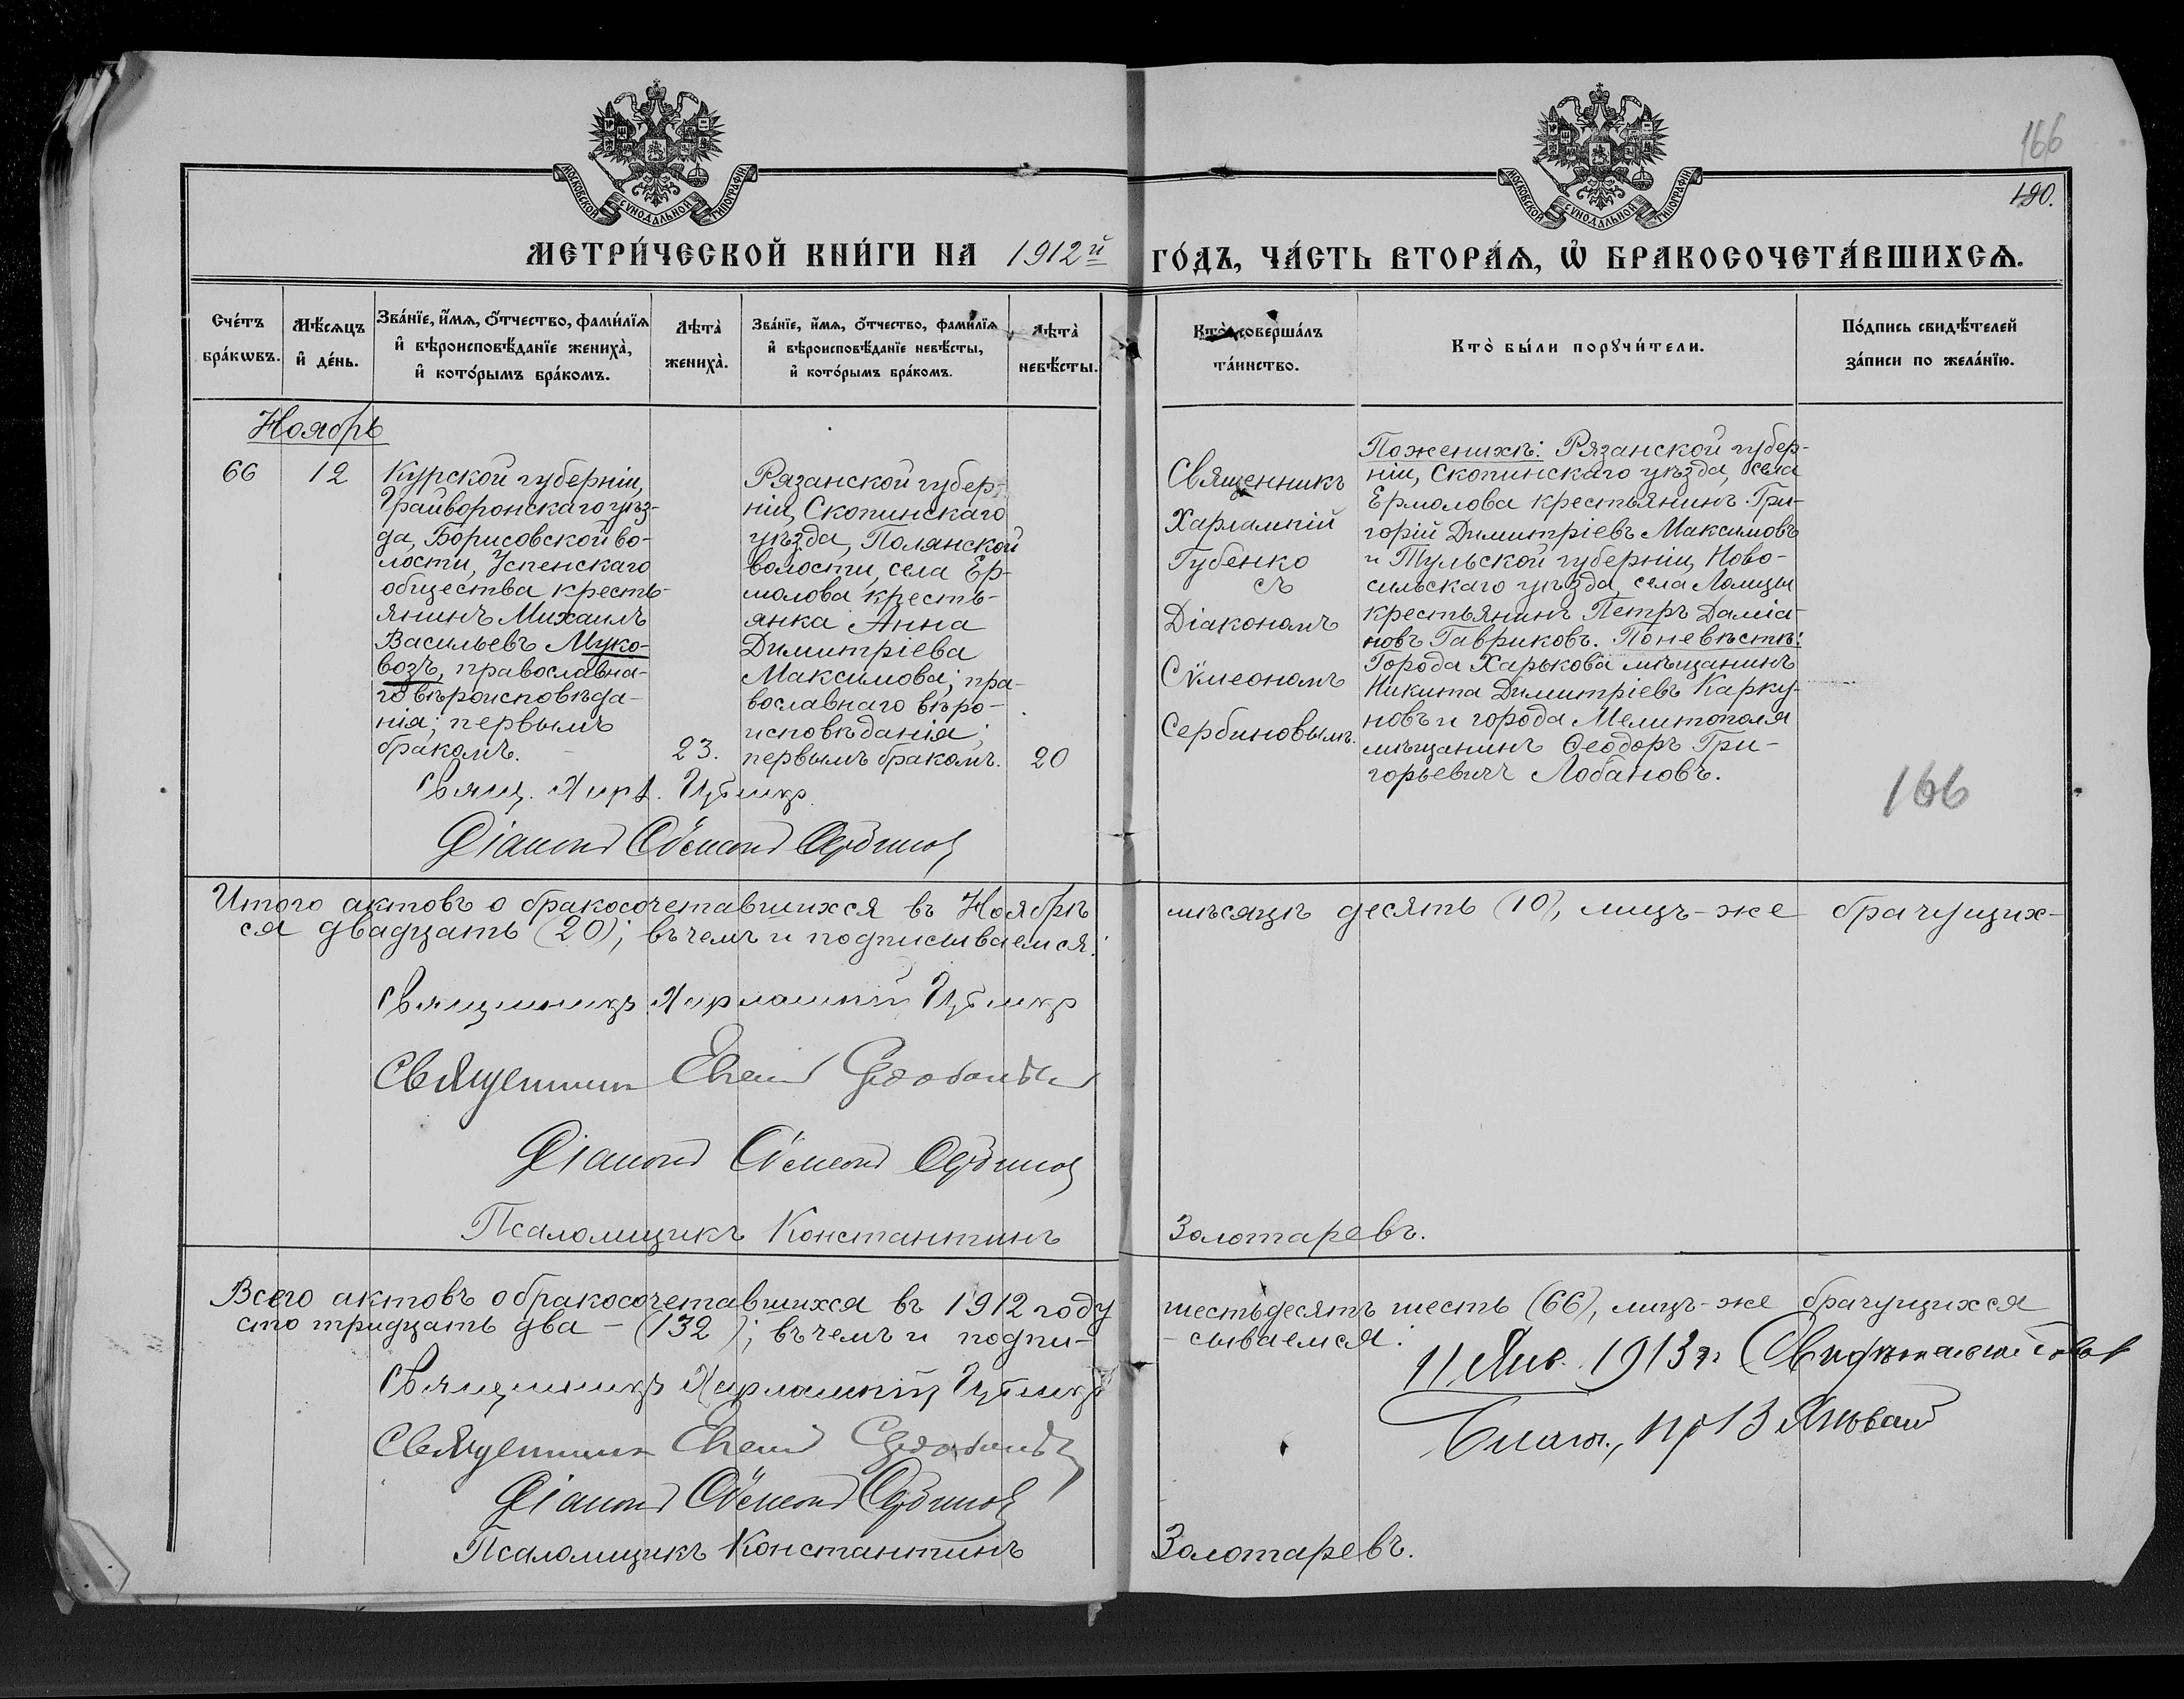 166
190.
МОСКОВСКОЙ СѴНОДАЛЬНОЙ ТИПОГРАФІИ
МОСКОВСКОЙ СѴНОДАЛЬНОЙ ТИПОГРАФІИ
МЕТРИ́ЧЕСКОЙ КНИ́ГИ НА 1912й ГО́ДЪ, ЧА́СТЬ ВТОРА́Ѧ, Ѽ БРАКОСОЧЕТА́ВШИХСѦ.
Сче́тъ
бра́кѡвъ.
Мѣ́сѧцъ
и҆ де́нь.
Зва́нїе, и҆́мѧ, ѻ҆́тчество, фами́лїѧ
и҆ вѣроисповѣ́данїе жениха̀,
и҆ кото́рымъ бра́комъ.
Лѣта̀
жениха̀.
Зва́нїе, и҆́мѧ, ѻ҆́тчество, фами́лїѧ
и҆ вѣроисповѣ́данїе невѣ́сты,
и҆ кото́рымъ бра́комъ.
Лѣта̀
невѣ́сты.
Кто̀ соверша́лъ
та́инство.
Кто̀ бы́ли порꙋчи́тели.
По́дпись свидѣ́телей
за́писи по жела́нїю.
Ноябрь
66
12
Курской губерніи,
Грайворонскаго уѣз-
да, Борисовской во-
лости, Успенскаго
общества кресть-
янинъ Михаилъ
Васильевъ Муко-
возъ, православна-
го вѣроисповѣда-
нія; первымъ
бракомъ.
23.
Рязанской губер-
ніи, Скопинскаго
уѣзда, Полянской
волости, села Ер-
молова кресть-
янка Анна
Димитріева
Максимова; пра-
вославнаго вѣро-
исповѣданія;
первымъ бракомъ.
20
Священникъ
Харлампій
Губенко
съ
Діакономъ
Сѵмеономъ
Сербиновымъ.
По женихѣ: Рязанской губер-
ніи, Скопинскаго уѣзда, села
Ермолова крестьянинъ Гри-
горій Димитріевъ Максимовъ
и Тульской губерніи, Ново-
сильскаго уѣзда, села Ломцы
крестьянинъ Петръ Даміа-
новъ Гавриковъ. По невѣстѣ:
Города Харькова мѣщанинъ
Никита Димитріевъ Карку-
новъ и города Мелитополя
мѣщанинъ Ѳеодоръ Гри-
горьевичъ Лобановъ.
166
Свящ. Харл. Губенко
Діаконъ Сѵмеонъ Сербиновъ
Итого актовъ о бракосочетавшихся въ Ноябрѣ мѣсяцѣ десять (10), лицъ-же брачущих-
ся двадцать (20); въ чемъ и подписываемся:
Священникъ Харлампій Губенко
Священникъ
Діаконъ Сѵмеонъ Сербиновъ
Псаломщикъ Константинъ Золотаревъ.
Всего актовъ о бракосочетавшихся въ 1912 году шестьдесятъ шесть (66), лицъ-же брачущихся
сто тридцать два – (132); въ чемъ и подпи- -сываемся:
Священникъ Харлампій Губенко
11 Янв. 1913 г. Свидѣтельствов
Священникъ
Благ., пр
Діаконъ Сѵмеонъ Сербиновъ
Псаломщикъ Константинъ Золотаревъ.